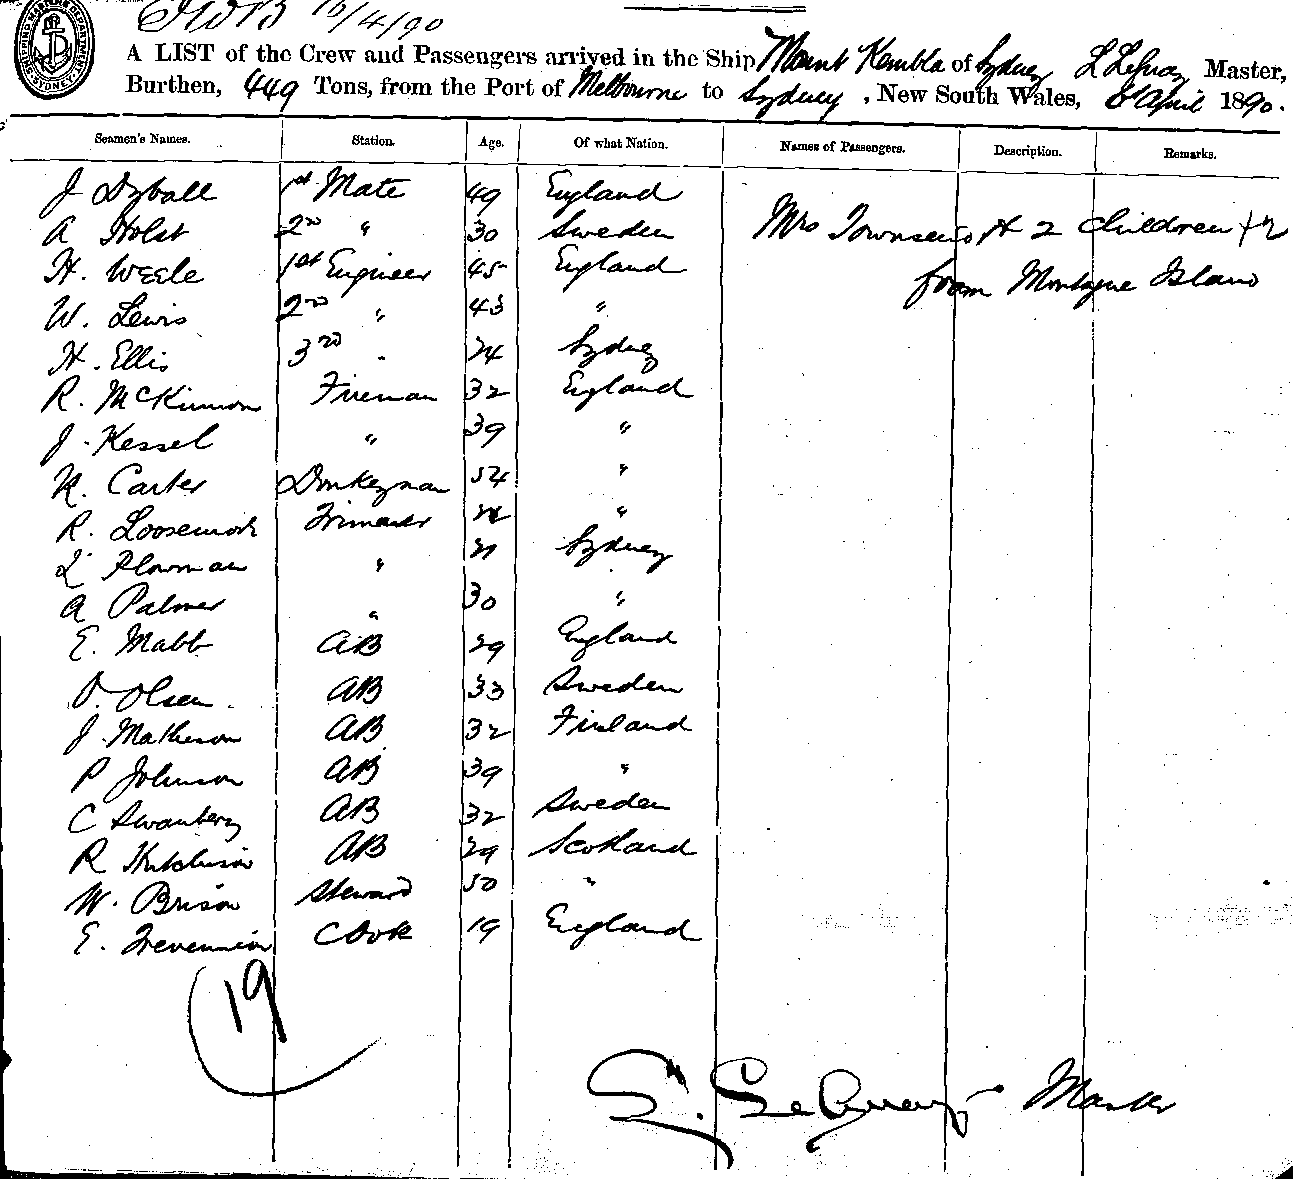 10/4/90
A LIST of the Crew and Passengers arrived in the Ship Mount Kembla of Sydney Master,
Burthen, 449 Tons, from the Port of Melbourne to Sydney, New South Wales, April 1890.
Seamen's Names. Station. Age. Of what Nation. Names of Passengers. Description. Remarks.
J Dyball 1st Mate 49 England
A Holst 2nd " 30 Sweden Mrs Townsend & 2 children
H. Weele 1st Engineer 45 England from Montague Island
W. Lewis 2nd " 43 "
H. Ellis 3rd " 24 Sydney
R. McKinnon Fireman 32 England
J. Kessel " 39 "
Carter Donkeyman 54 "
R. Loosemore Trimmer "
Plowman " 21 Sydney
A Palmer " 30 "
E. Mabb AB 29 England
O. Olsen AB 33 Sweden
J. Matheson AB 32 Finland
P Johnson AB 39 "
C Swanberg AB 32 Sweden
R Hutchison AB 29 Scotland
W. Brison Steward 50 "
E. Trevennion Cook 19 England
19
Master